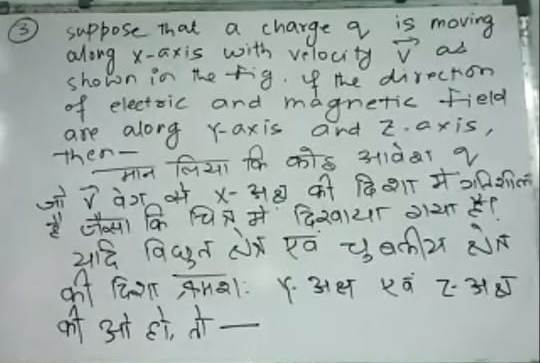 ③ suppose that a charge q is moving
along x-axis with velocity v⃗ as
shown in the fig. If the direction
of electric and magnetic field
are along Y-axis and Z-axis,
then—
मान लिया कि कोइ आवेश q
जो v⃗ वेग से X-अक्ष की दिशा में गतिशील
है जैसा कि चित्र में दिखाया गया है।
यदि विधुत क्षेत्र एवं चुबकीय क्षेत्र
की दिशा क्रमशः Y-अक्ष एवं Z-अक्ष
की ओ हो, तो —